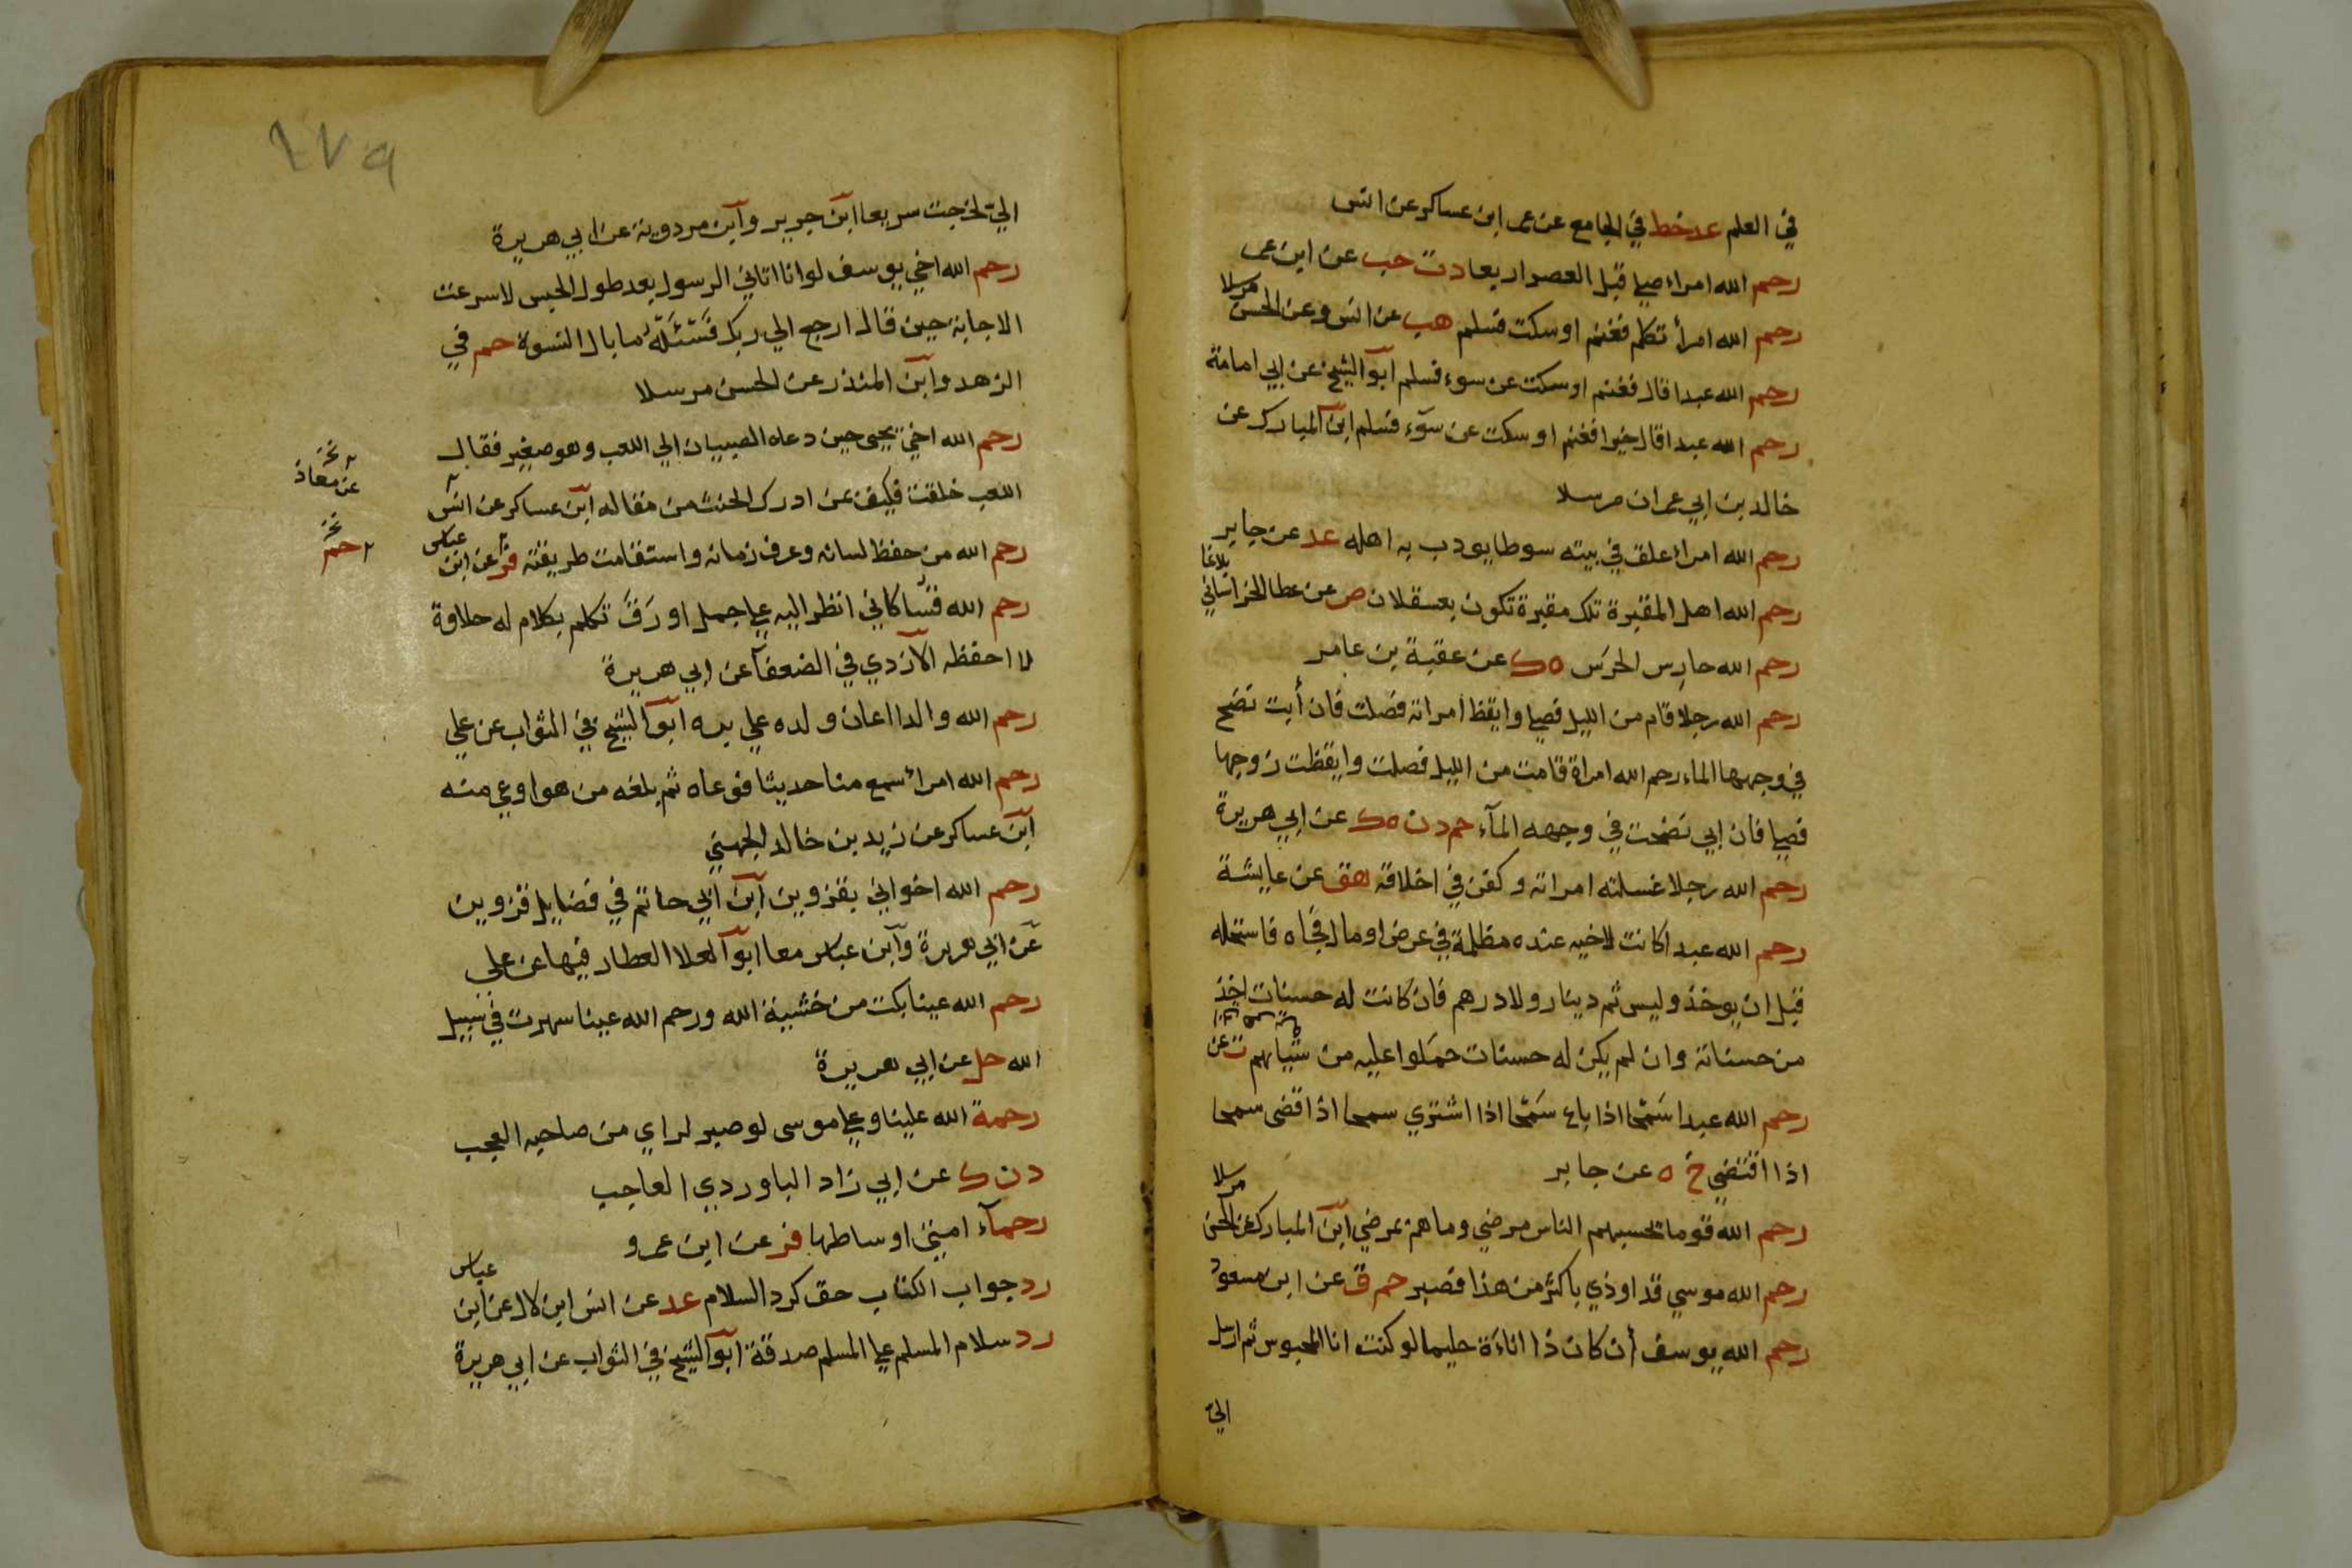 في العلم عد خط في الجامع عن عمر ابن عساكر عن انس
رحم الله امراء صلى قبل العصر اربعا دت حب عن ابن عمر
رحم الله امرأ تكلم فغنم او سكت فسلم هب عن انس وعن الحسن مرسلا
رحم الله عبدا قال فغنم او سكت عن سوء فسلم ابو الشيخ عن ابي امامة
رحم الله عبدا قال خيرا فغنم او سكت عن سوء فسلم ابن المبارك عن
خالد بن ابي عمران مرسلا
رحم الله امراء علق في بيته سوطا يودب به اهله عد عن جابر
رحم الله اهل المقبرة تلك مقبرة تكون بعسقلان ص عن عطا الخراساني بلاغا
رحم الله حارس الحرس ه ك عن عقبة بن عامر
رحم الله رجلا قام من الليل فصلى وايقظ امراته فصلت فان أبت نضح
في وجهها الماء رحم الله امراة قامت من الليل فصلت وايقظت زوجها
فصلى فان ابي نضحت في وجهه المآء حم د ن ه ك عن ابي هريرة
رحم الله رجلا غسلته امراته وكفن في اخلاقه هق عن عايشة
رحم الله عبدا كانت لاخيه عنده مظلمة في عرض او مال فجاه فاستحله
قبل ان يوخذ وليس ثم دينار ولا درهم فان كانت له حسنات اخذ
من حسناته وان لم يكن له حسنات حملوا عليه من سياتهم ت عن
رحم الله عبدا سمحا اذا باع سمحا اذا اشتري سمحا اذا قضى سمحا
اذا اقتضي خ ه عن جابر
رحم الله قوما تحسبهم الناس مرضي وما هم بمرضي ابن المبارك عن الحسن مرسلا
رحم الله موسي قد اوذي باكثر من هذا فصبر حم ق عن ابن مسعود
رحم الله يوسف أن كان ذا اناءة حليما لو كنت انا المحبوس ثم ارسل
الي
١٧٩
الي لخرجت سريعا ابن جرير وابن مردوية عن ابي هريرة
رحم الله اخي يوسف لو انا اتاني الرسول بعد طول الحبس لاسرعت
الاجابة حين قال ارجع الي ربك فسئله ما بال النسوة حم في
الزهد وابن المنذر عن الحسن مرسلا
رحم الله اخي يحيى حين دعاه الصبيان الي اللعب وهو صغير فقال
اللعب خلقت فكيف عن ادرك الحنث من مقاله ابن عساكر عن انس
عن معاذ
رحم الله من حفظ لسانه وعرف زمانه واستقامت طريقته فر عن ابن عباس
حم
رحم الله قسا كاني انظر اليه على جمل اورق تكلم بكلام له حلاوة
لا احفظه الازدي في الضعفآ عن ابي هريرة
رحم الله والدا اعان ولده علي بره ابو الشيخ في الثواب عن علي
رحم الله امرأ سمع منا حديثا فوعاه ثم بلغه من هو اوعى منه
ابن عساكر عن زيد بن خالد الجهني
رحم الله اخواني بقزوين ابن ابي حاتم في فضايل قزوين
عن ابي هريرة وابن عباس معا ابو العلا العطار فيها عن علي
رحم الله عينا بكت من خشية الله ورحم الله عينا سهرت في سبيل
الله حل عن ابي هريرة
رحمة الله علينا وعلى موسى لو صبر لراي من صاحبه العجب
د ن ك عن ابي زاد الباوردي العاجب
رحمآء امتي اوساطها فر عن ابن عمرو
رد جواب الكتاب حق كرد السلام عد عن انس ابن لال عن ابن عباس
رد سلام المسلم على المسلم صدقة ابو الشيخ في الثواب عن ابي هريرة